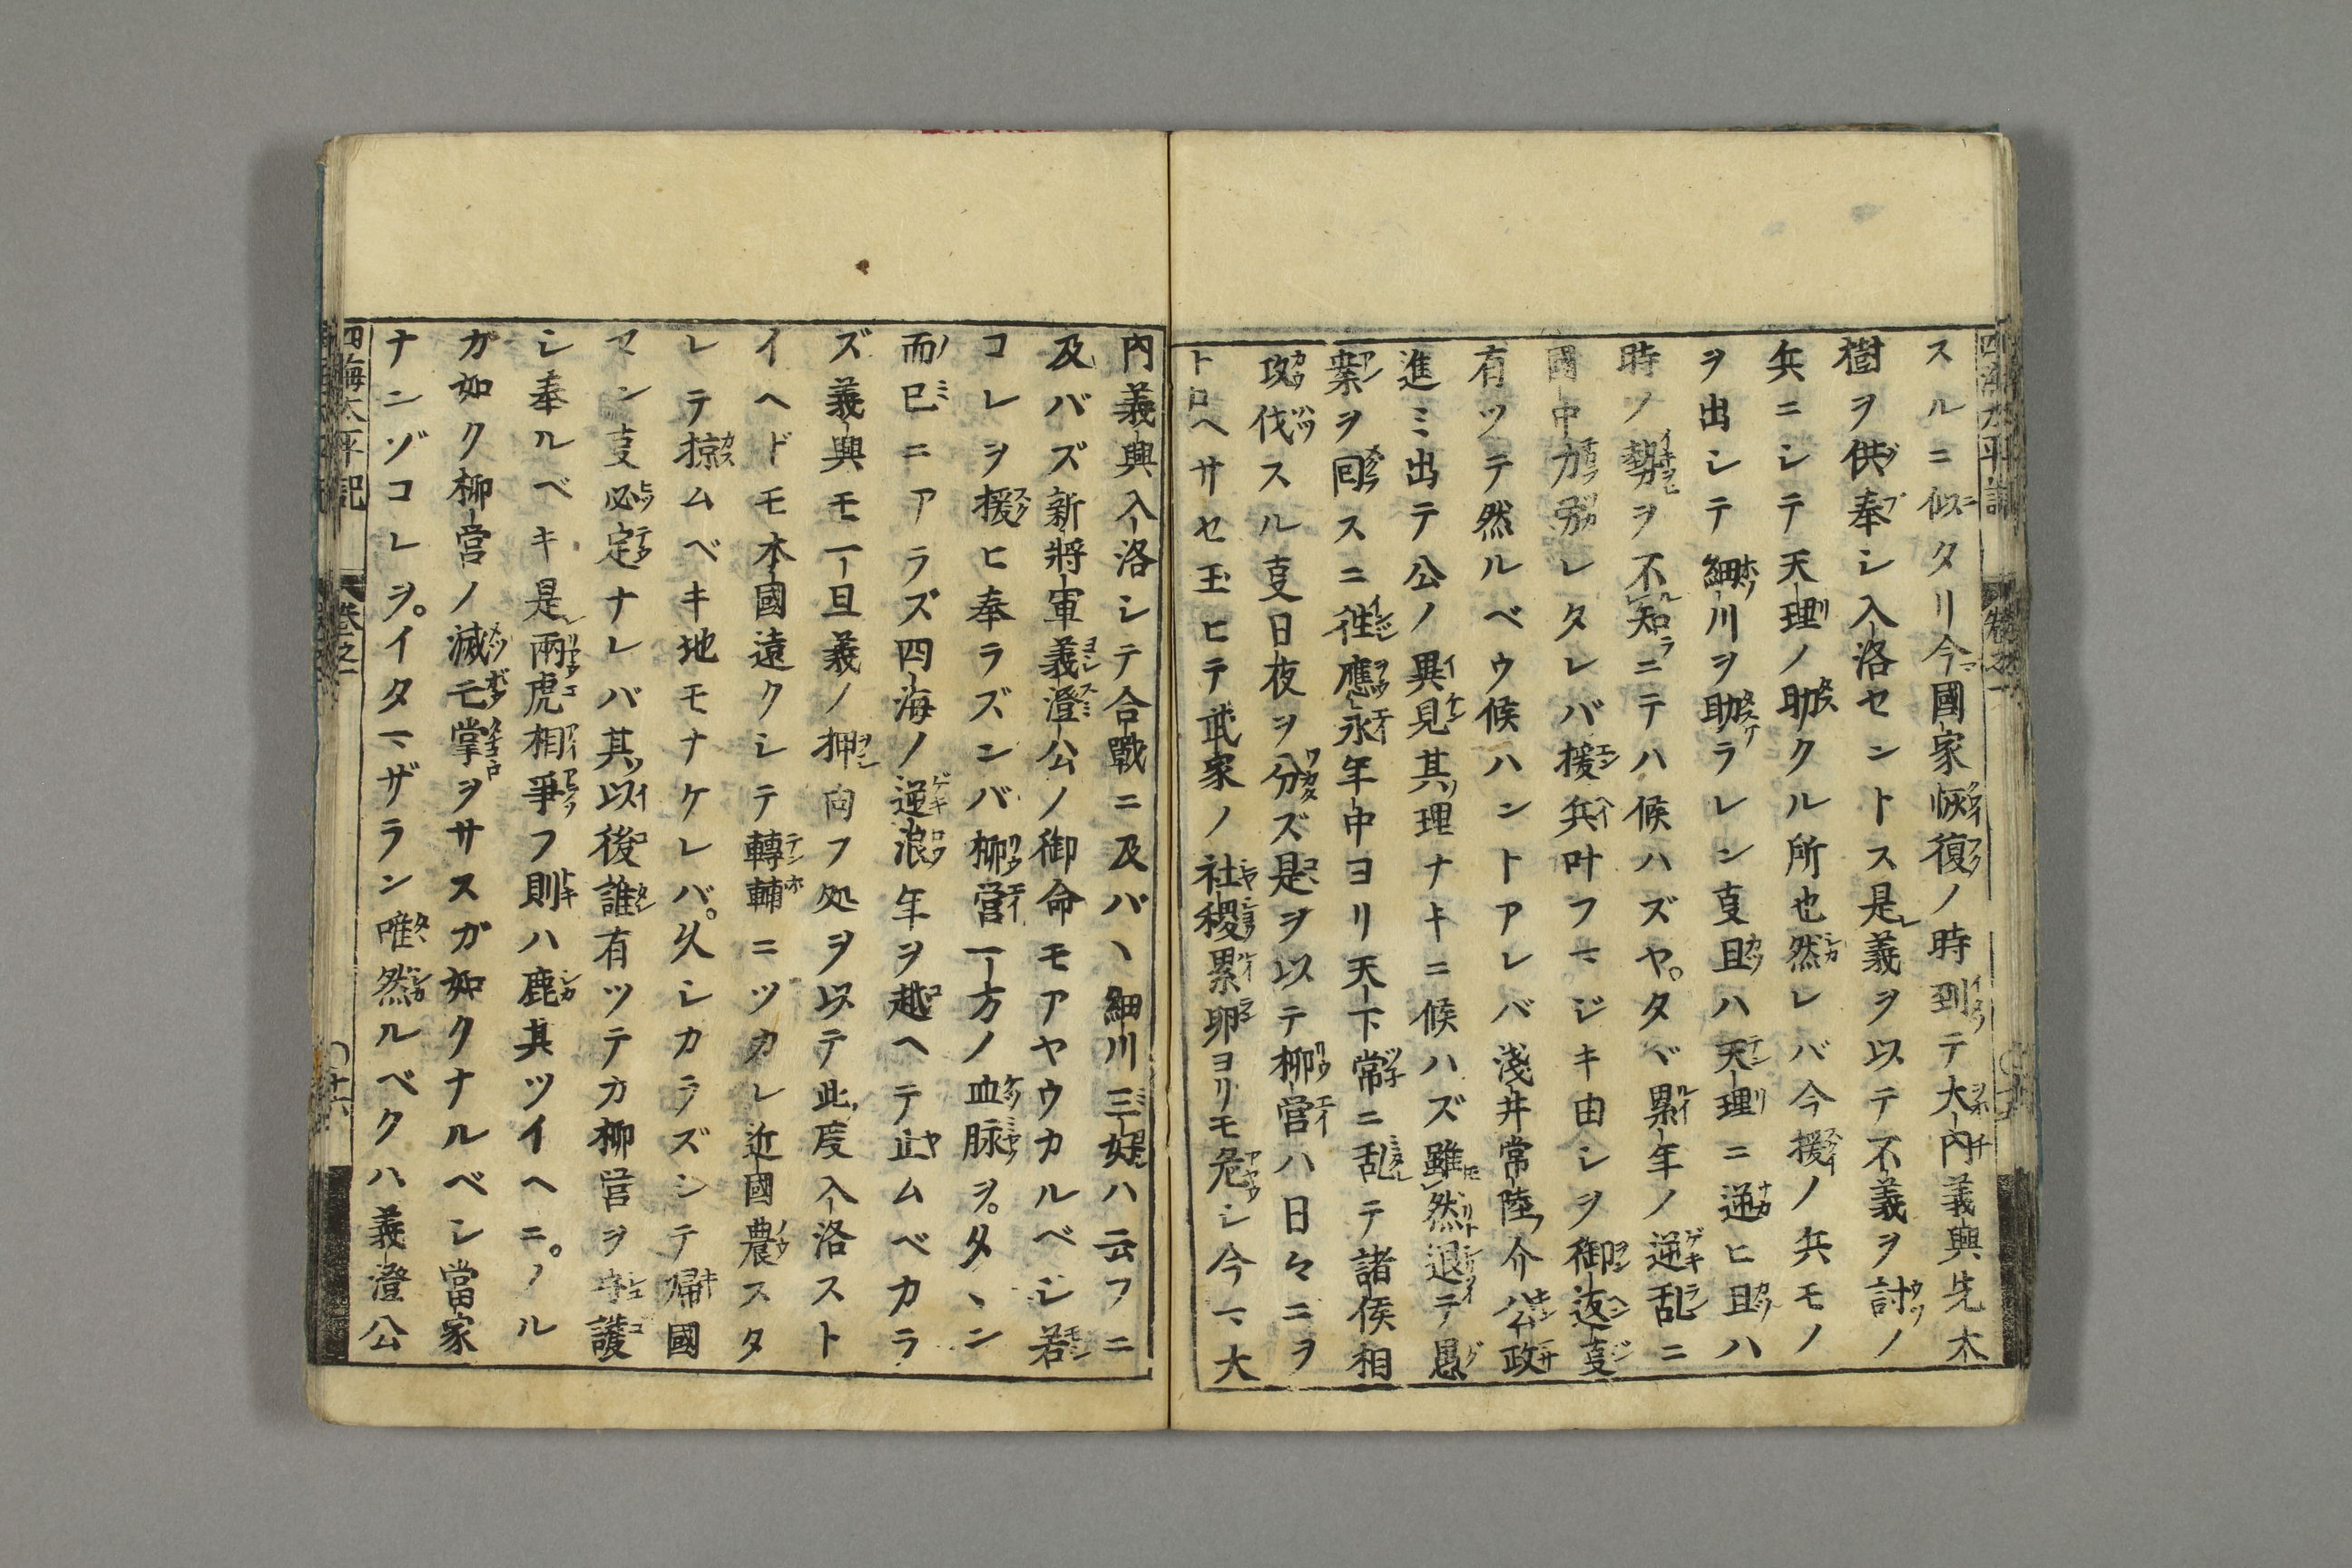 スルニ似タリ今國家恢復ノ時到テ大内義興先大
樹ヲ供奉シ入洛セントス是義ヲ以テ不義ヲ討ノ
兵ニシテ天理ノ助クル所也然レバ今援ノ兵モノ
ヲ出シテ細川ヲ助ラレン叓且ハ天理ニ逆ヒ且ハ
時ノ勢ヲ不知ニテハ候ハズヤ。タヾ累年ノ逆乱ニ
國中力労レタレバ援兵叶フマジキ由シヲ御返叓
有ツテ然ルベウ候ハントアレバ淺井常陸介公政
進ミ出テ公ノ異見其理ナキニ候ハズ雖然退テ愚
案ヲ囘スニ往應永年中ヨリ天下常ニ乱テ諸侯相
攻伐スル叓日夜ヲ分ズ是ヲ以テ柳営ハ日々ニヲ
トロヘサセ玉ヒテ武家ノ社稷累卵ヨリモ危シ今マ大
内義興入洛シテ合戰ニ及バヽ細川三好ハ云フニ
及バズ新將軍義澄公ノ御命モアヤウカルベシ若
コレヲ援ヒ奉ラズンバ柳営一方ノ血脉ヲ。タヽン
而已ニアラズ四海ノ逆浪年ヲ越ヘテ止ムベカラ
ズ義興モ一旦義ノ押向フ処ヲ以テ此度入洛スト
イヘドモ本國遠クシテ轉輔ニツカレ近國農スタ
レテ掠ムベキ地モナケレバ。久シカラズシテ帰國
マン叓必定ナレバ其以後誰有ツテカ柳営ヲ守護
シ奉ルベキ是兩虎相爭フ則ハ鹿其ツイヘニ。ノル
ガ如ク柳営ノ滅亡掌ヲサスガ如クナルベシ當家
ナニゾコレヲ。イタマザラン唯然ルベクハ義澄公
四海太平記
卷之一
〇十六